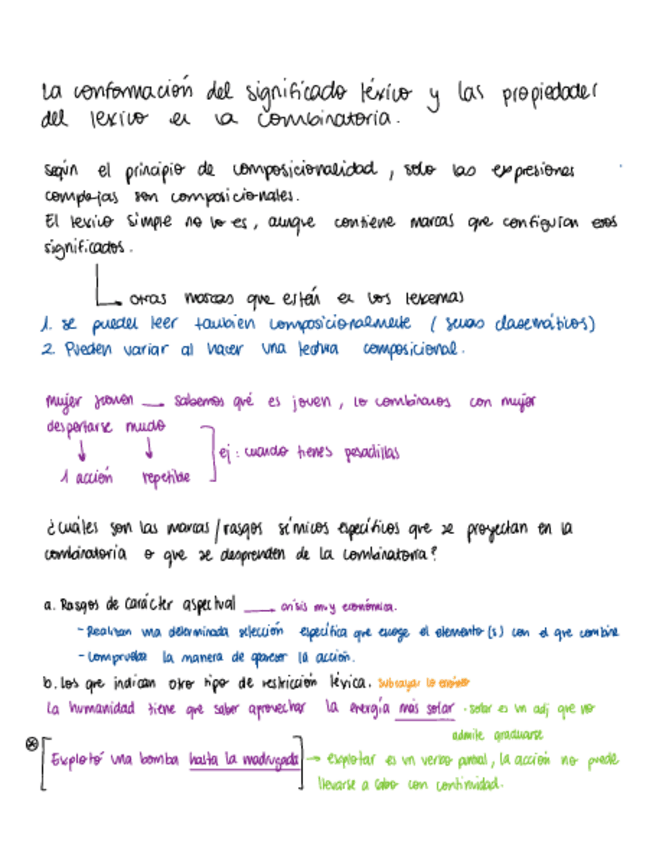 La conformación del significado léxico y las propiedades
del léxico en la combinatoria.
Según el principio de composicionalidad, solo las expresiones
complejas son composicionales.
El léxico simple no lo es, aunque contiene marcas que configuran esos
significados.
otras marcas que están en los lexemas
1. se pueden leer también composicionalmente (semas clasemáticos)
2. Pueden variar al hacer una lectura composicional.
mujer joven → sabemos qué es joven, lo combinamos con mujer
despertarse mucho
↓ ↓ ej: cuando tienes pesadillas
1 acción repetible
¿Cuáles son las marcas/rasgos sémicos específicos que se proyectan en la
combinatoria o que se desprenden de la combinatoria?
a. Rasgos de carácter aspectual → crisis muy económica.
- Realizan una determinada selección específica que escoge el elemento(s) con el que combina
- Comprueba la manera de aparecer la acción.
b. Los que indican otro tipo de restricción léxica. Subrayar lo erróneo
La humanidad tiene que saber aprovechar la energía más solar · solar es un adj que no
admite graduarse
⊗ [Explotó una bomba hasta la madrugada] → explotar es un verbo puntual, la acción no puede
llevarse a cabo con continuidad.